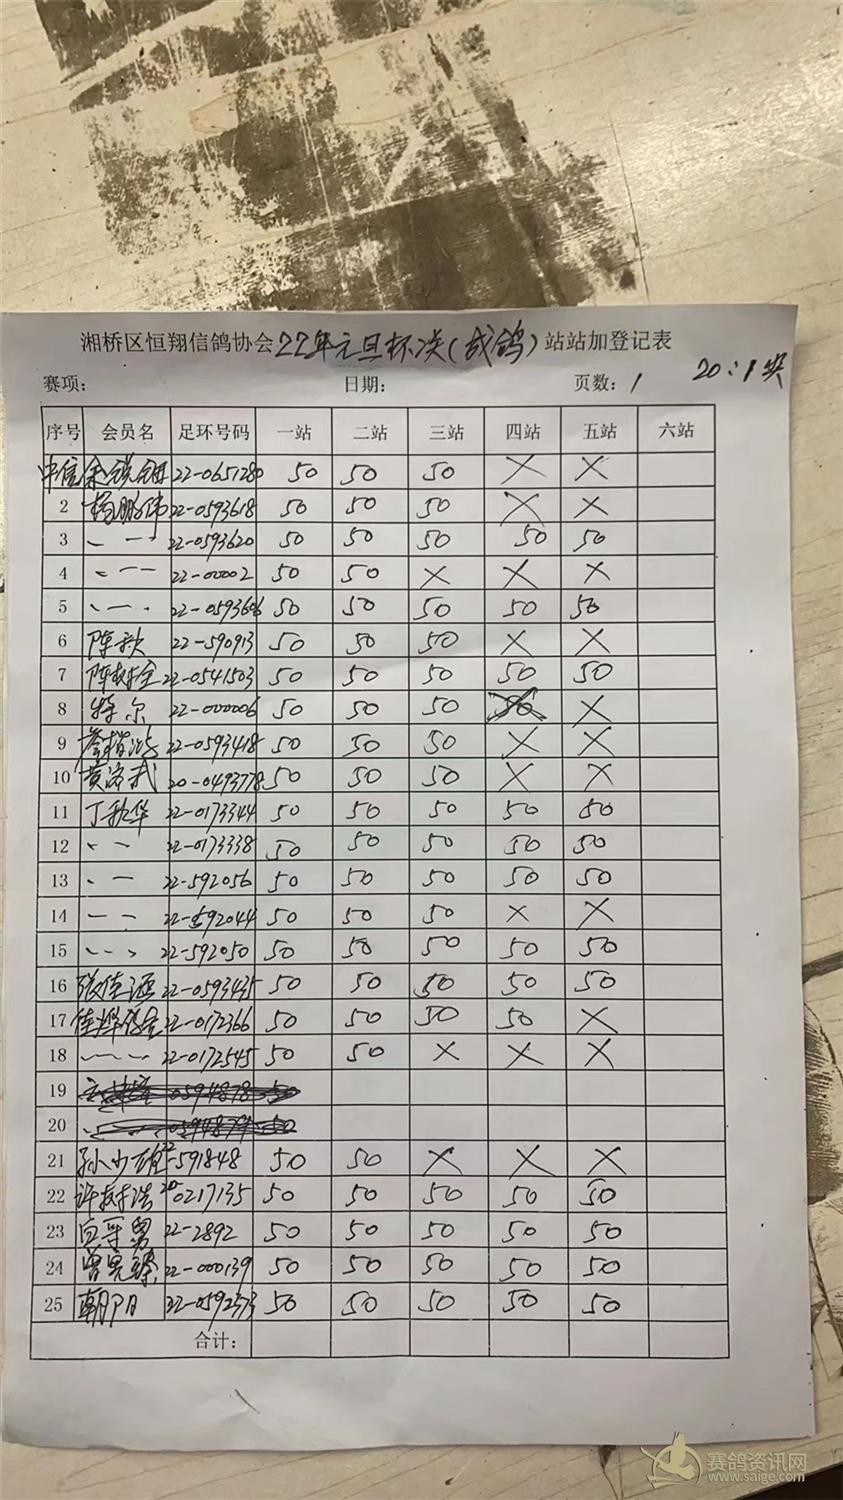 湘桥区恒翔信鸽协会22年元旦杯决(成鸽)站站加登记表
赛项: 日期: 页数: 1 20:1奖
序号 会员名 足环号码 一站 二站 三站 四站 五站 六站
中信 余锐钿 22-0651280 50 50 50 X X
2 杨鹏伟 22-0593618 50 50 50 X X
3 22-0593620 50 50 50 50 50
4 22-00002 50 50 X X X
5 22-0593606 50 50 50 50 50
6 陈秋 22-590913 50 50 50 X X
7 陈树全 22-0541503 50 50 50 50 50
8 特尔 22-000006 50 50 50 50 X
9 22-0593418 50 50 50 X X
10 黄 武 20-0493778 50 50 50 X X
11 丁秋华 22-0173344 50 50 50 50 50
12 22-0173338 50 50 50 50 50
13 22-592056 50 50 50 50 50
14 22-592044 50 50 50 X X
15 22-592050 50 50 50 50 50
16 张佳涵 22-0593435 50 50 50 50 50
17 佳 22-0172366 50 50 50 50 X
18 22-0172545 50 50 X X X
19 0594878 50
20 0594879 50
21 孙少雄 22-591848 50 50 X X X
22 许树浩 20-0217135 50 50 50 50 50
23 22-2892 50 50 50 50 50
24 曾 臻 22-000139 50 50 50 50 50
25 朝阳 22-0592373 50 50 50 50 50
合计:
赛鸽资讯网
www.saige.com